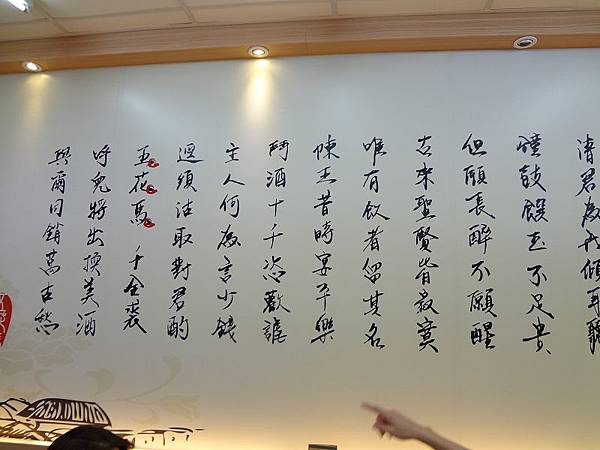 請君為我傾耳聽
鐘鼓饌玉不足貴
但願長醉不願醒
古來聖賢皆寂寞
唯有飲者留其名
陳王昔時宴平樂
鬥酒十千恣歡謔
主人何為言少錢
逕須沽取對君酌
五花馬 千金裘
呼兒將出換美酒
與爾同銷萬古愁